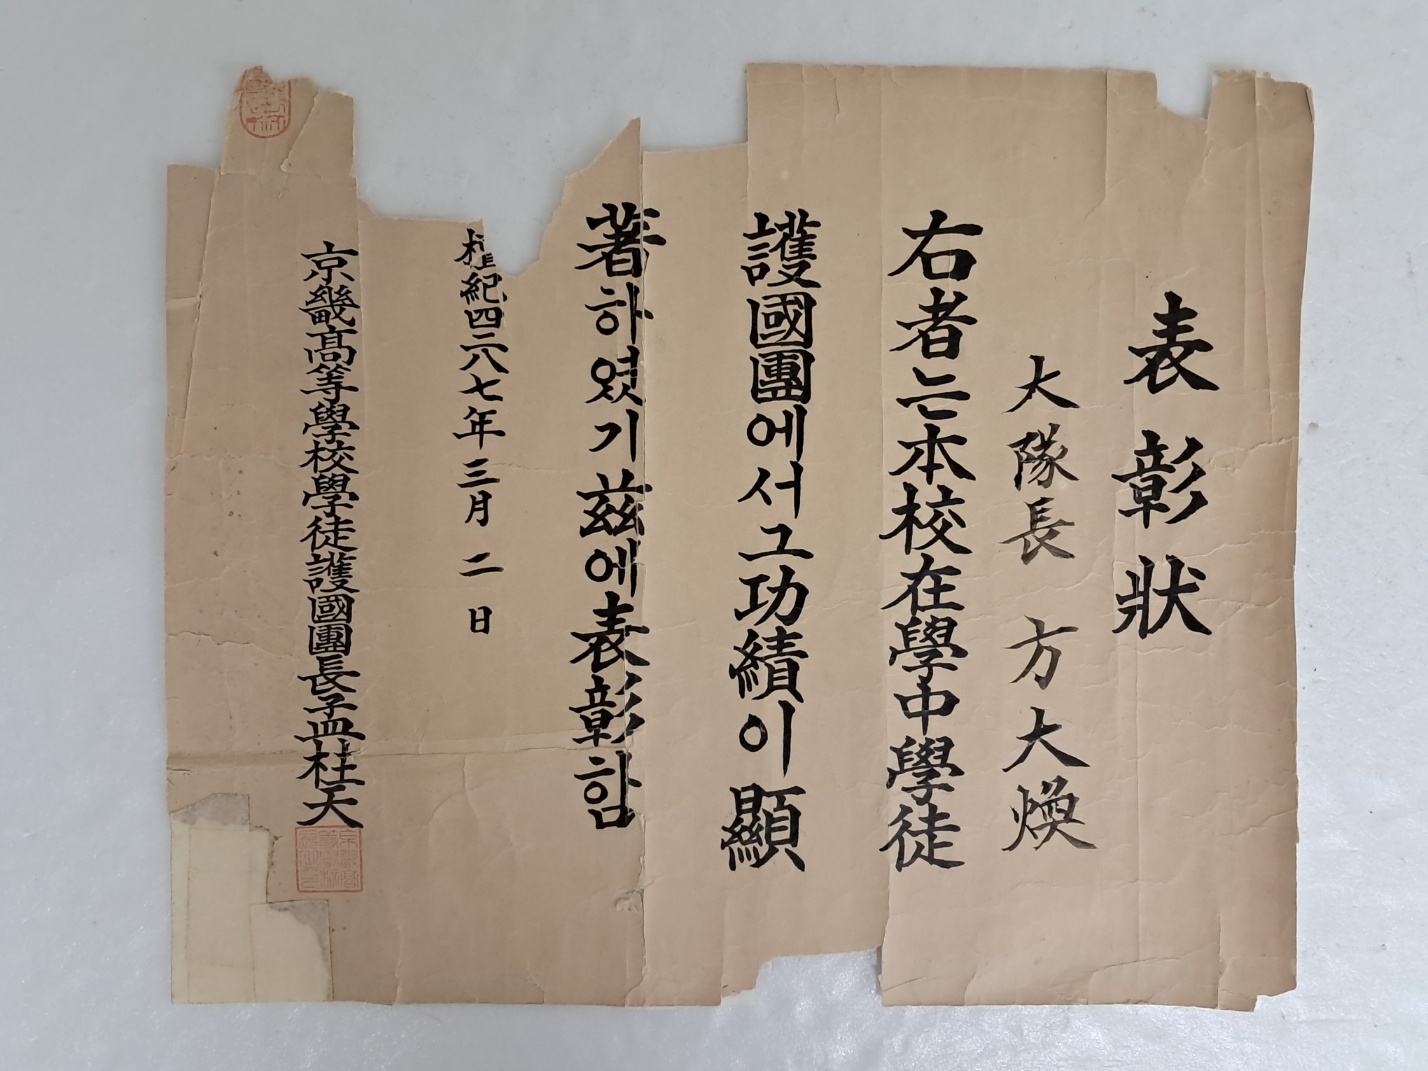 表彰狀
大隊長 方大煥
右者는本校在學中學徒
護國團에서그功績이顯
著하였기玆에表彰함
檀紀四二八七年三月二日
京畿高等學校學徒護國團長孟柱天